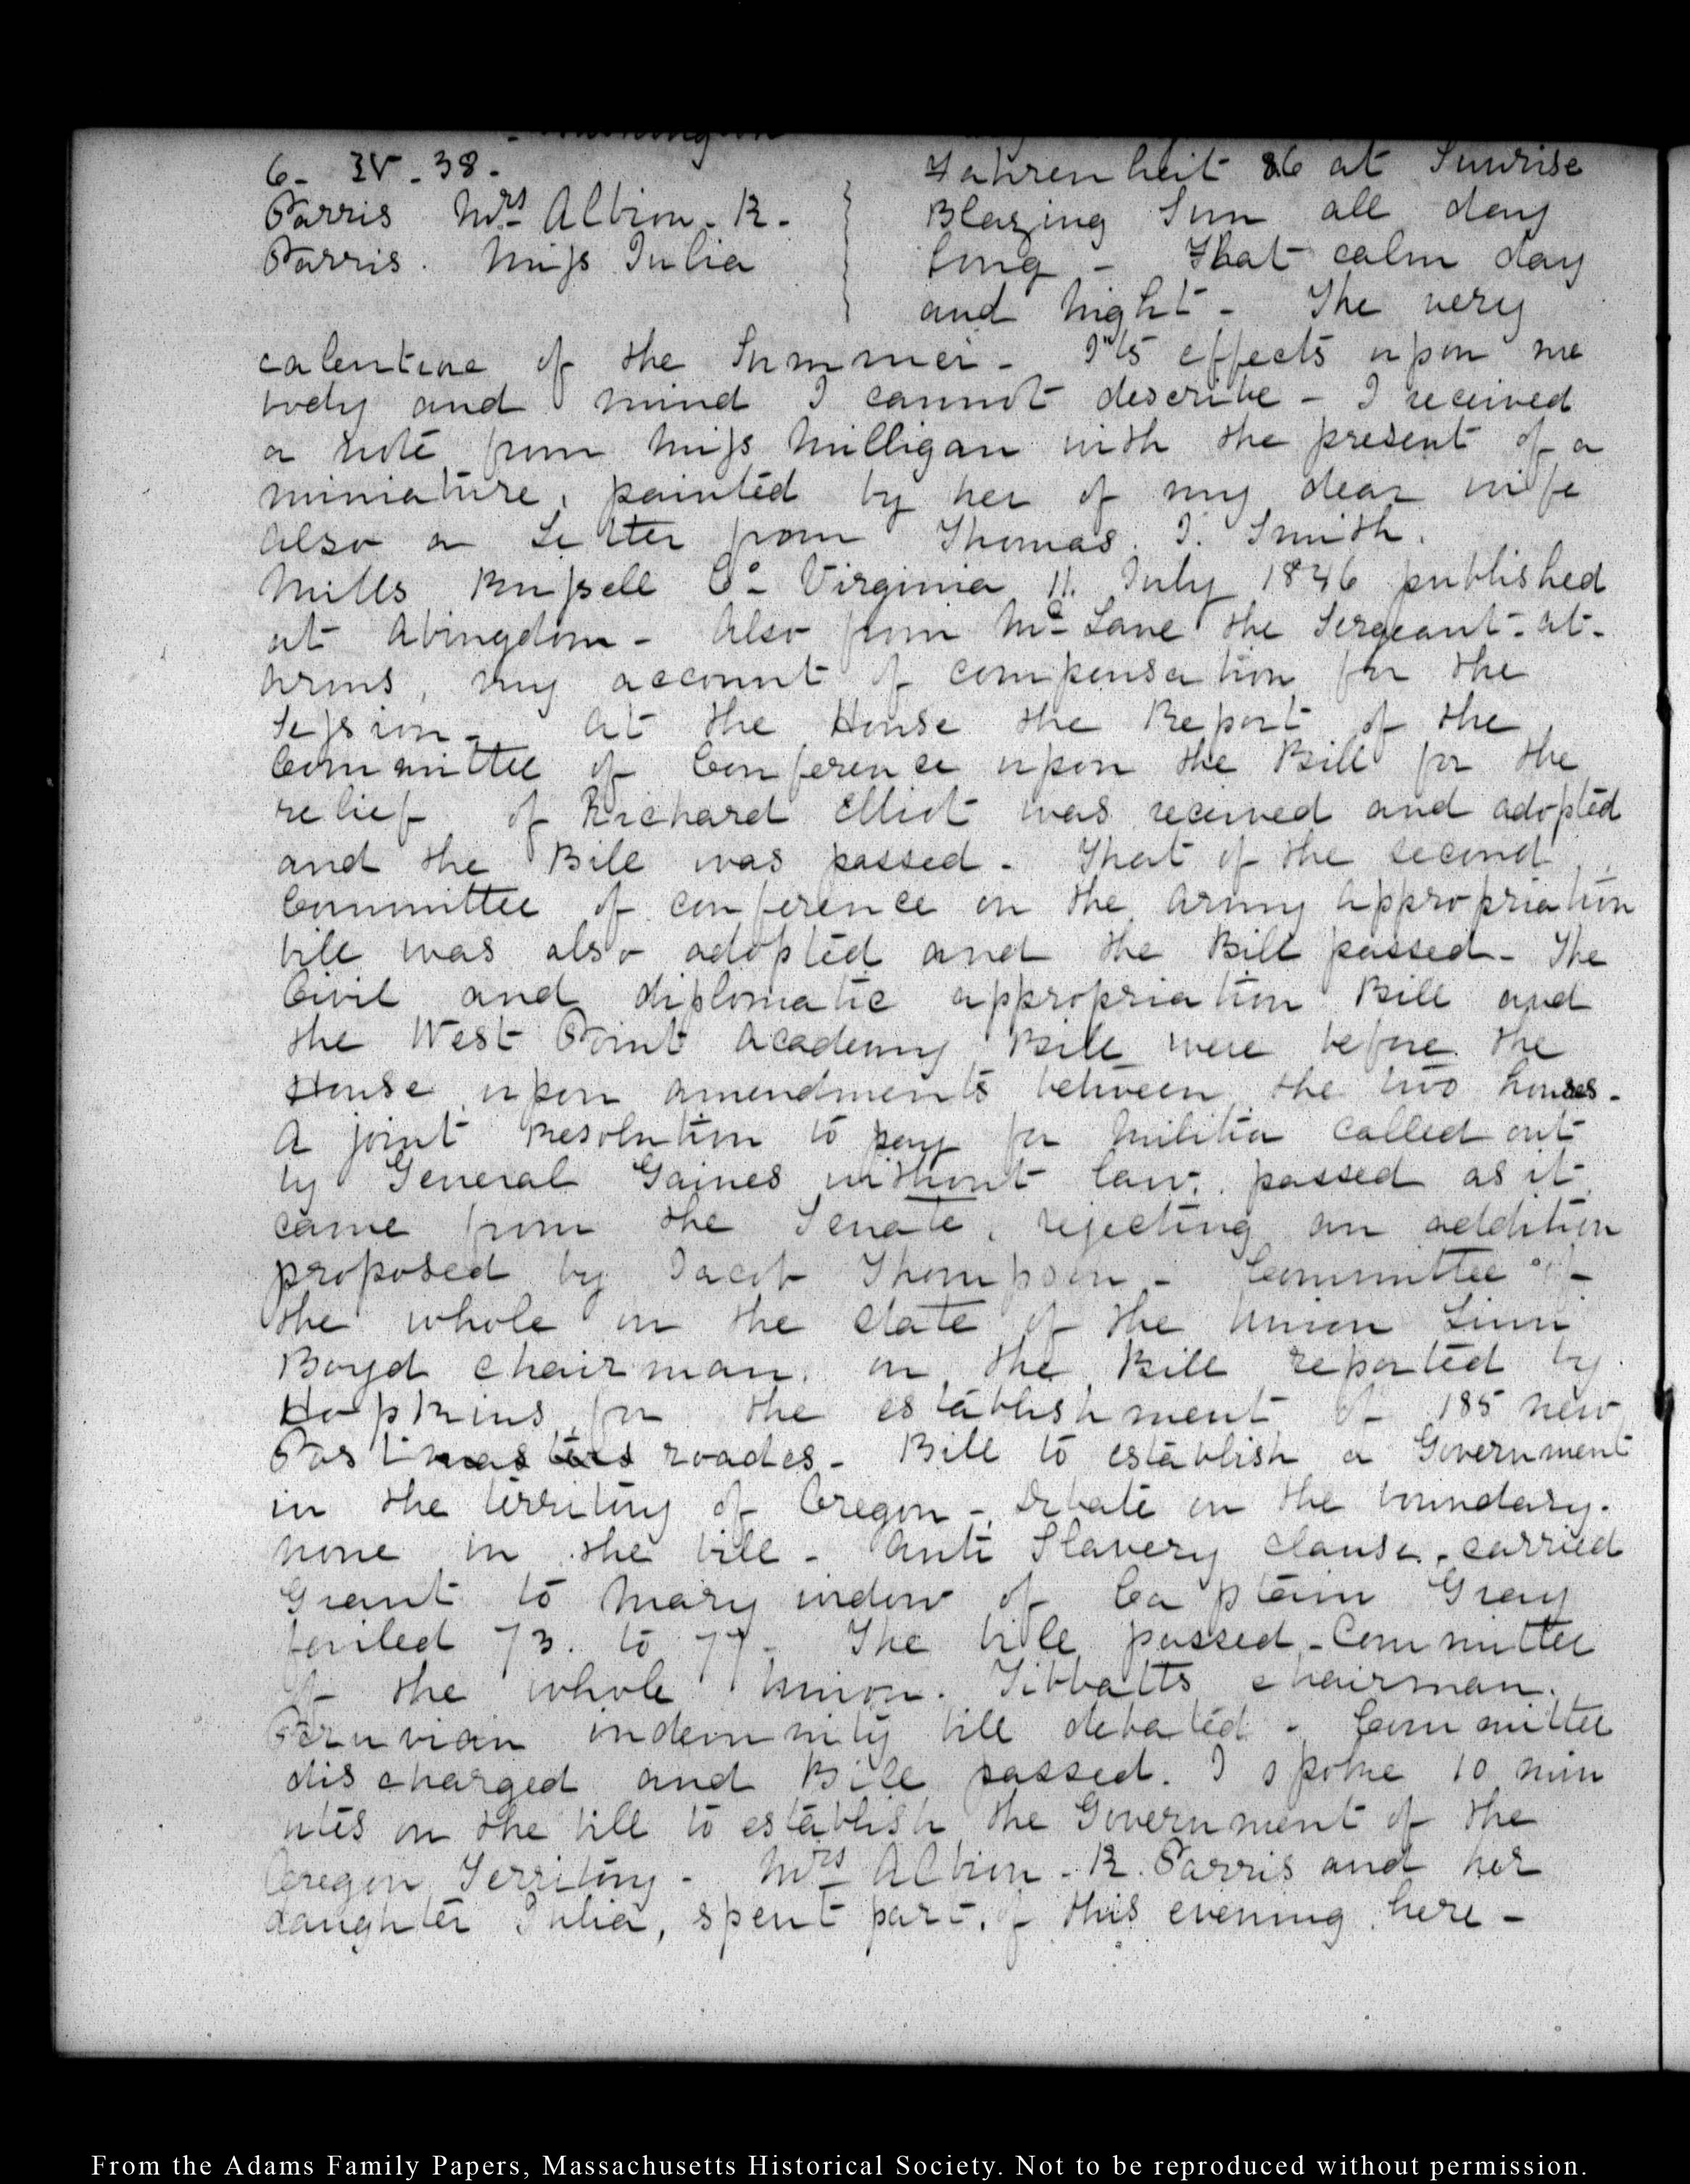 6 - IV - 38 -
Parris Mrs Albion. K.
Parris. Miss Julia
Fahrenheit 86 at Sunrise
Blazing Sun all day
long - That calm day
and night - The very
calenture of the Summer - It's effects upon me
body and mind I cannot describe - I received
a note from Miss Milligan with the present of a
miniature, painted by her of my dear wife
also a Letter from Thomas. I. Smith.
Mills Russell Co. Virginia 11. July 1846 published
at Abingdon - Also from Mc Lane the Sergeant-at-
arms, my account of compensation for the
Session - At the House the Report of the
Committee of Conference upon the Bill for the
relief of Richard Elliot was received and adopted
and the Bill was passed - That of the second
Committee of conference on the army appropriation
bill was also adopted and the Bill passed - The
Civil and diplomatic appropriation Bill and
the West Point Academy Bill were before the
House upon amendments between the two houses -
A joint Resolution to pay for Militia called out
by General Gaines without law, passed as it
came from the Senate, rejecting an addition
proposed by Jacob Thompson - Committee of
the whole on the state of the Union Linn
Boyd chairman. on the Bill reported by
Hopkins for the establishment of 185 new
Post masters roades - Bill to establish a Government
in the territory of Oregon - Debate on the boundary.
none in the bill - Anti Slavery clause - carried
Grant to Mary widow of Captain Gray
failed 73. to 77 - The bill passed - Committee
of the whole Union. Tibbatts chairman.
Peruvian indemnity bill debated - Committee
discharged and Bill passed. I spoke 10 min
utes on the bill to establish the Government of the
Oregon Territory - Mrs Albion - K. Parris and her
daughter Julia, spent part of this evening here -
From the Adams Family Papers, Massachusetts Historical Society. Not to be reproduced without permission.